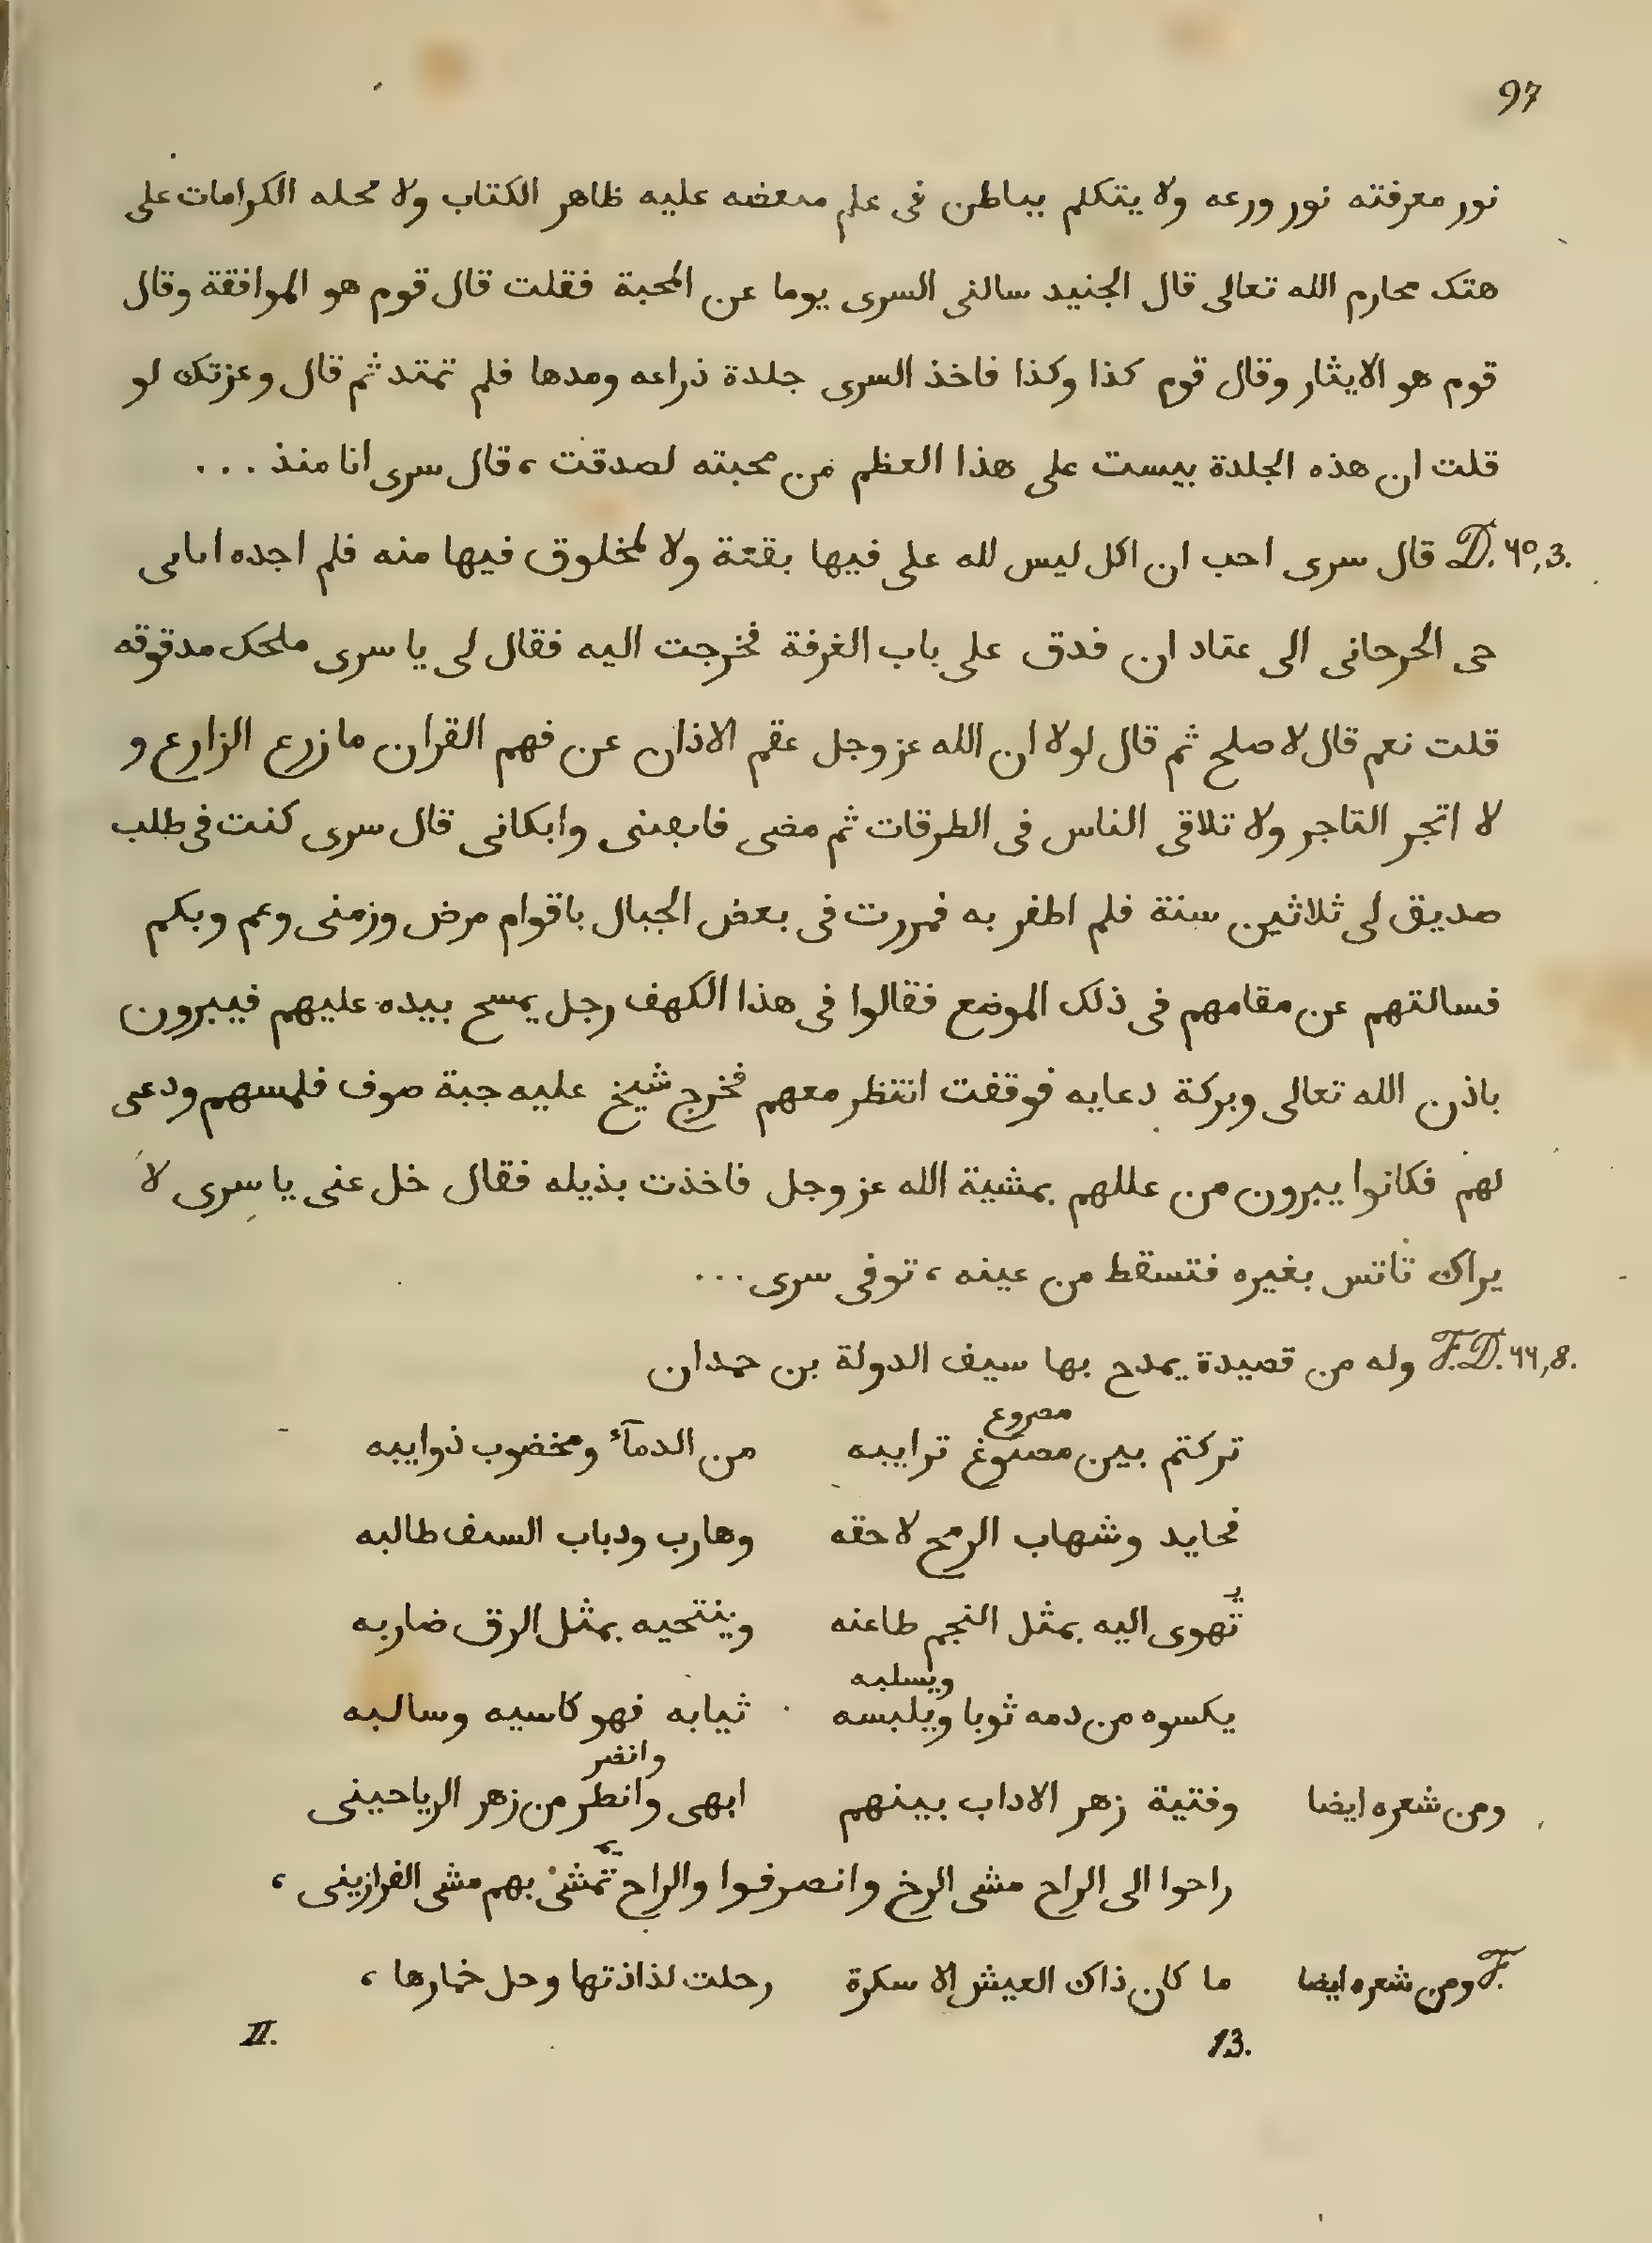 97
نور معرفته نور ورعه ولا يتكلم بباطن فى علم ىىعضه عليه ظاهر الكتاب ولا محله الكرامات على
هتك محارم الله تعالى قال الجنيد سالنى السرى يوما عن المحبة فقلت قال قوم هو الموافقة وقال
قوم هو الايثار وقال قوم كذا وكذا فاخذ السرى جلدة ذراعه ومدها فلم تمتد ثم قال وعزتك لو
قلت ان هذه الجلدة يبست على هذا العظم من محبته لصدقت ، قال سرى انا منذ ...
D. 40,3. قال سرى احب ان اكل ليس لله على فيها بقعة ولا لمخلوق فيها منه فلم اجده اىاىى
حى الحرحانى الى عتاد ان فدق على باب الغرفة فخرجت اليه فقال لى يا سرى ملحك مدقوقه
قلت نعم قال لا صلح ثم قال لولا ان الله عز وجل عقم الاذان عن فهم القران ما زرع الزارع و
لا اتجر التاجر ولا تلاقى الناس فى الطرقات ثم مضى فابعىنى وابكانى قال سرى كنت فى طلب
صديق لى ثلاثين سنة فلم اطفر به فمررت فى بعض الجبال باقوام مرض وزمنى وعم وبكم
فسالتهم عن مقامهم فى ذلك الموضع فقالوا فى هذا الكهف رجل يمسح بيده عليهم فيبرون
باذن الله تعالى وبركة دعايه فوقفت انتظر معهم فخرج شيخ عليه جبة صوف فلمسهم ودعى
لهم فكانوا يبرون من عللهم بمشية الله عز وجل فاخذت بذيله فقال خل عنى يا سرى لا
يراك تاتس بغيره فتسقط من عينه ، توفى سرى ...
F.D. 44,8. وله من قصيدة يمدح بها سيف الدولة بن حمدان
مصروع
تركتم بين مصبوغ ترايبه من الدمآء ومخضوب ذوايبه
فحايد وشهاب الرمح لاحقه وهارب ودباب السىف طالبه
يـ
تهوى اليه بمثل النجم طاعنه وينتحيه بمثل الرق ضاربه
ويسلبه
يكسوه من دمه ثوبا ويلبسه ثيابه فهو كاسيه وسالبه
وانضر
ومن شعره ايضا وفتية زهر الاداب بينهم ابهى وانطر من زهر الرياحينى
راحوا الى الراح مشى الرخ وانصرفوا والراح تمشى بهم مشى الفرازينى ،
F. ومن شعره ايضا ما كان ذاك العيش إلا سكرة رحلت لذاذتها وحل خمارها ،
II. 13.